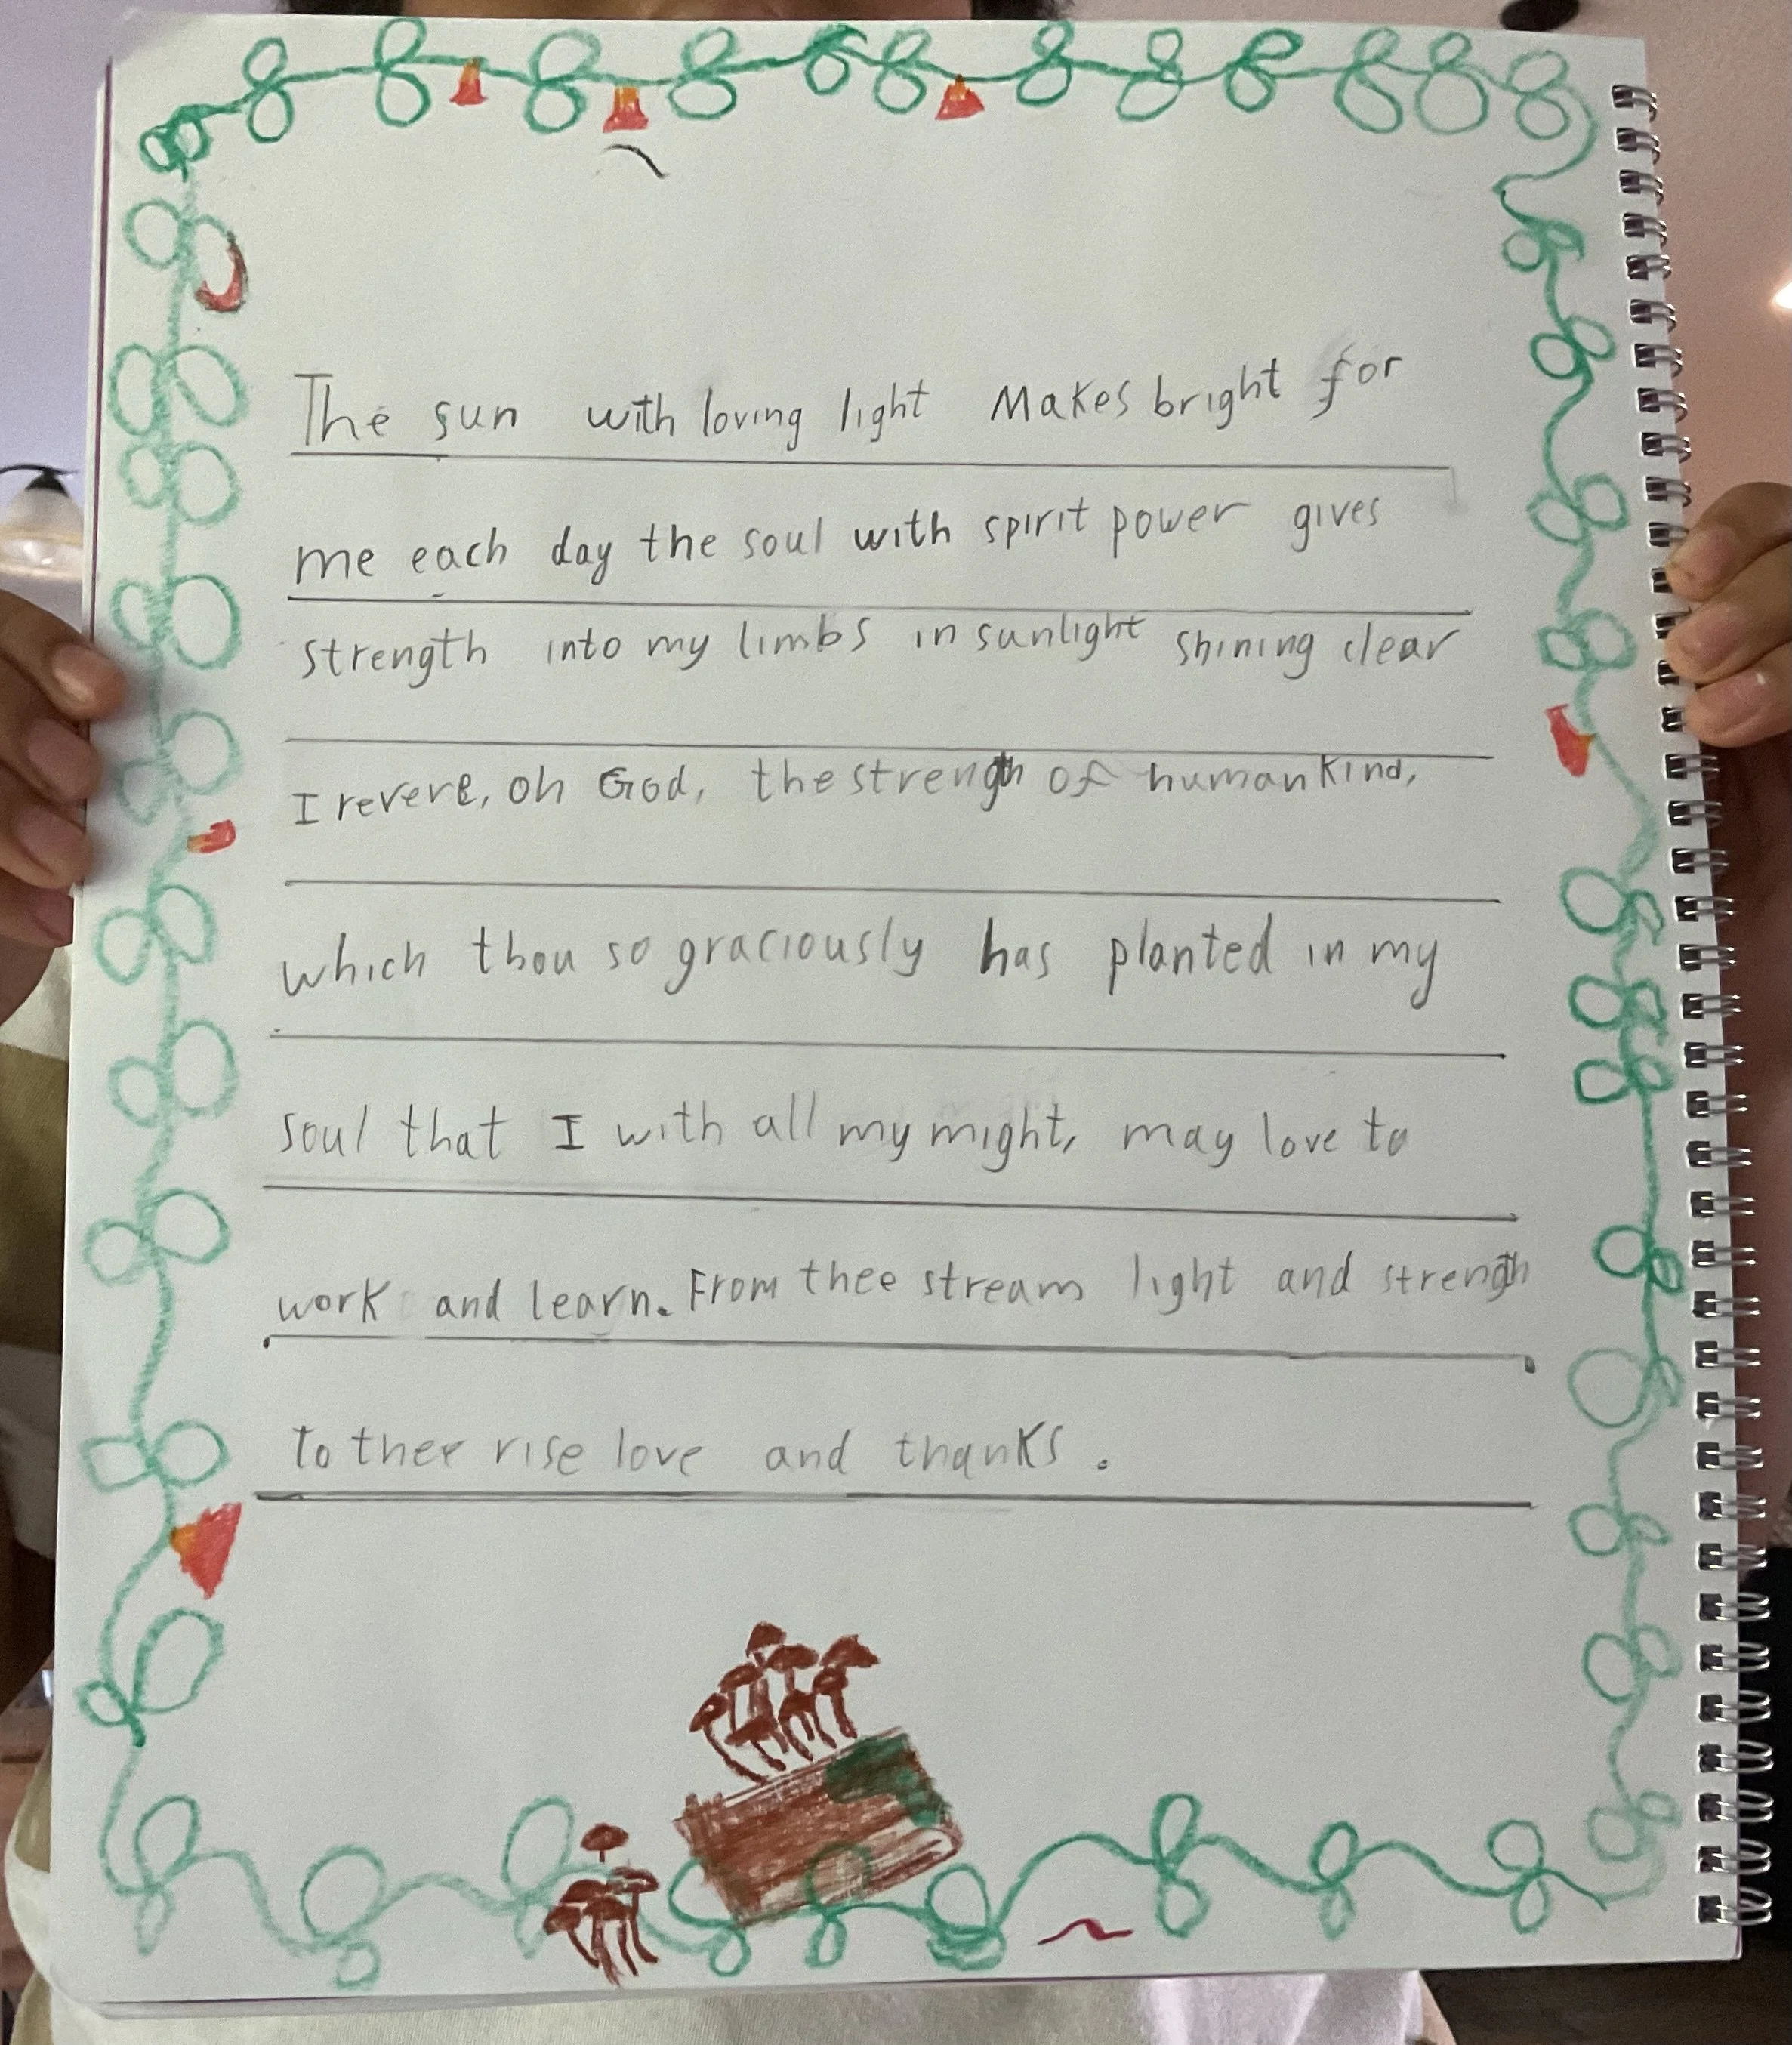 The sun with loving light Makes bright for
me each day the soul with spirit power gives
strength into my limbs in sunlight shining clear
I revere, oh God, the strength of humankind,
which thou so graciously has planted in my
soul that I with all my might, may love to
work and learn. From thee stream light and strength
to thee rise love and thanks.